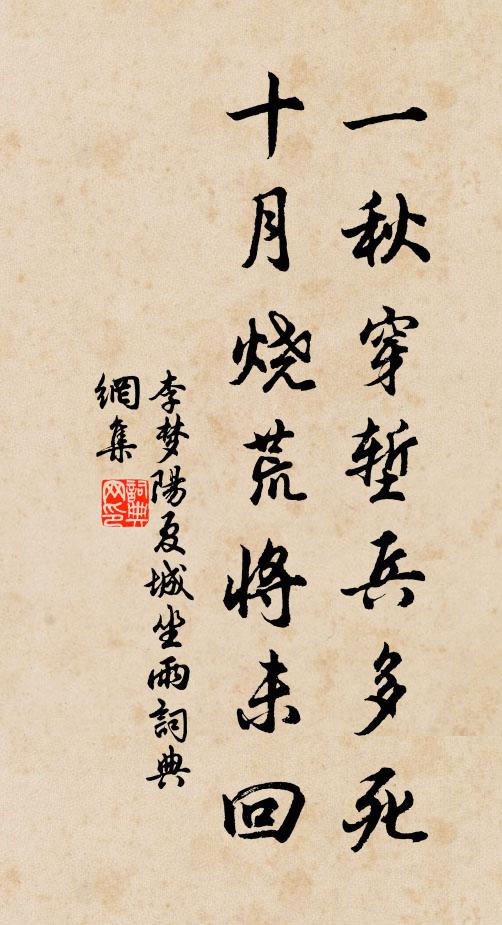 一秋穿堑兵多死
十月烧荒将未回
李梦陽夏城坐雨詞典
網集
詞典
网印